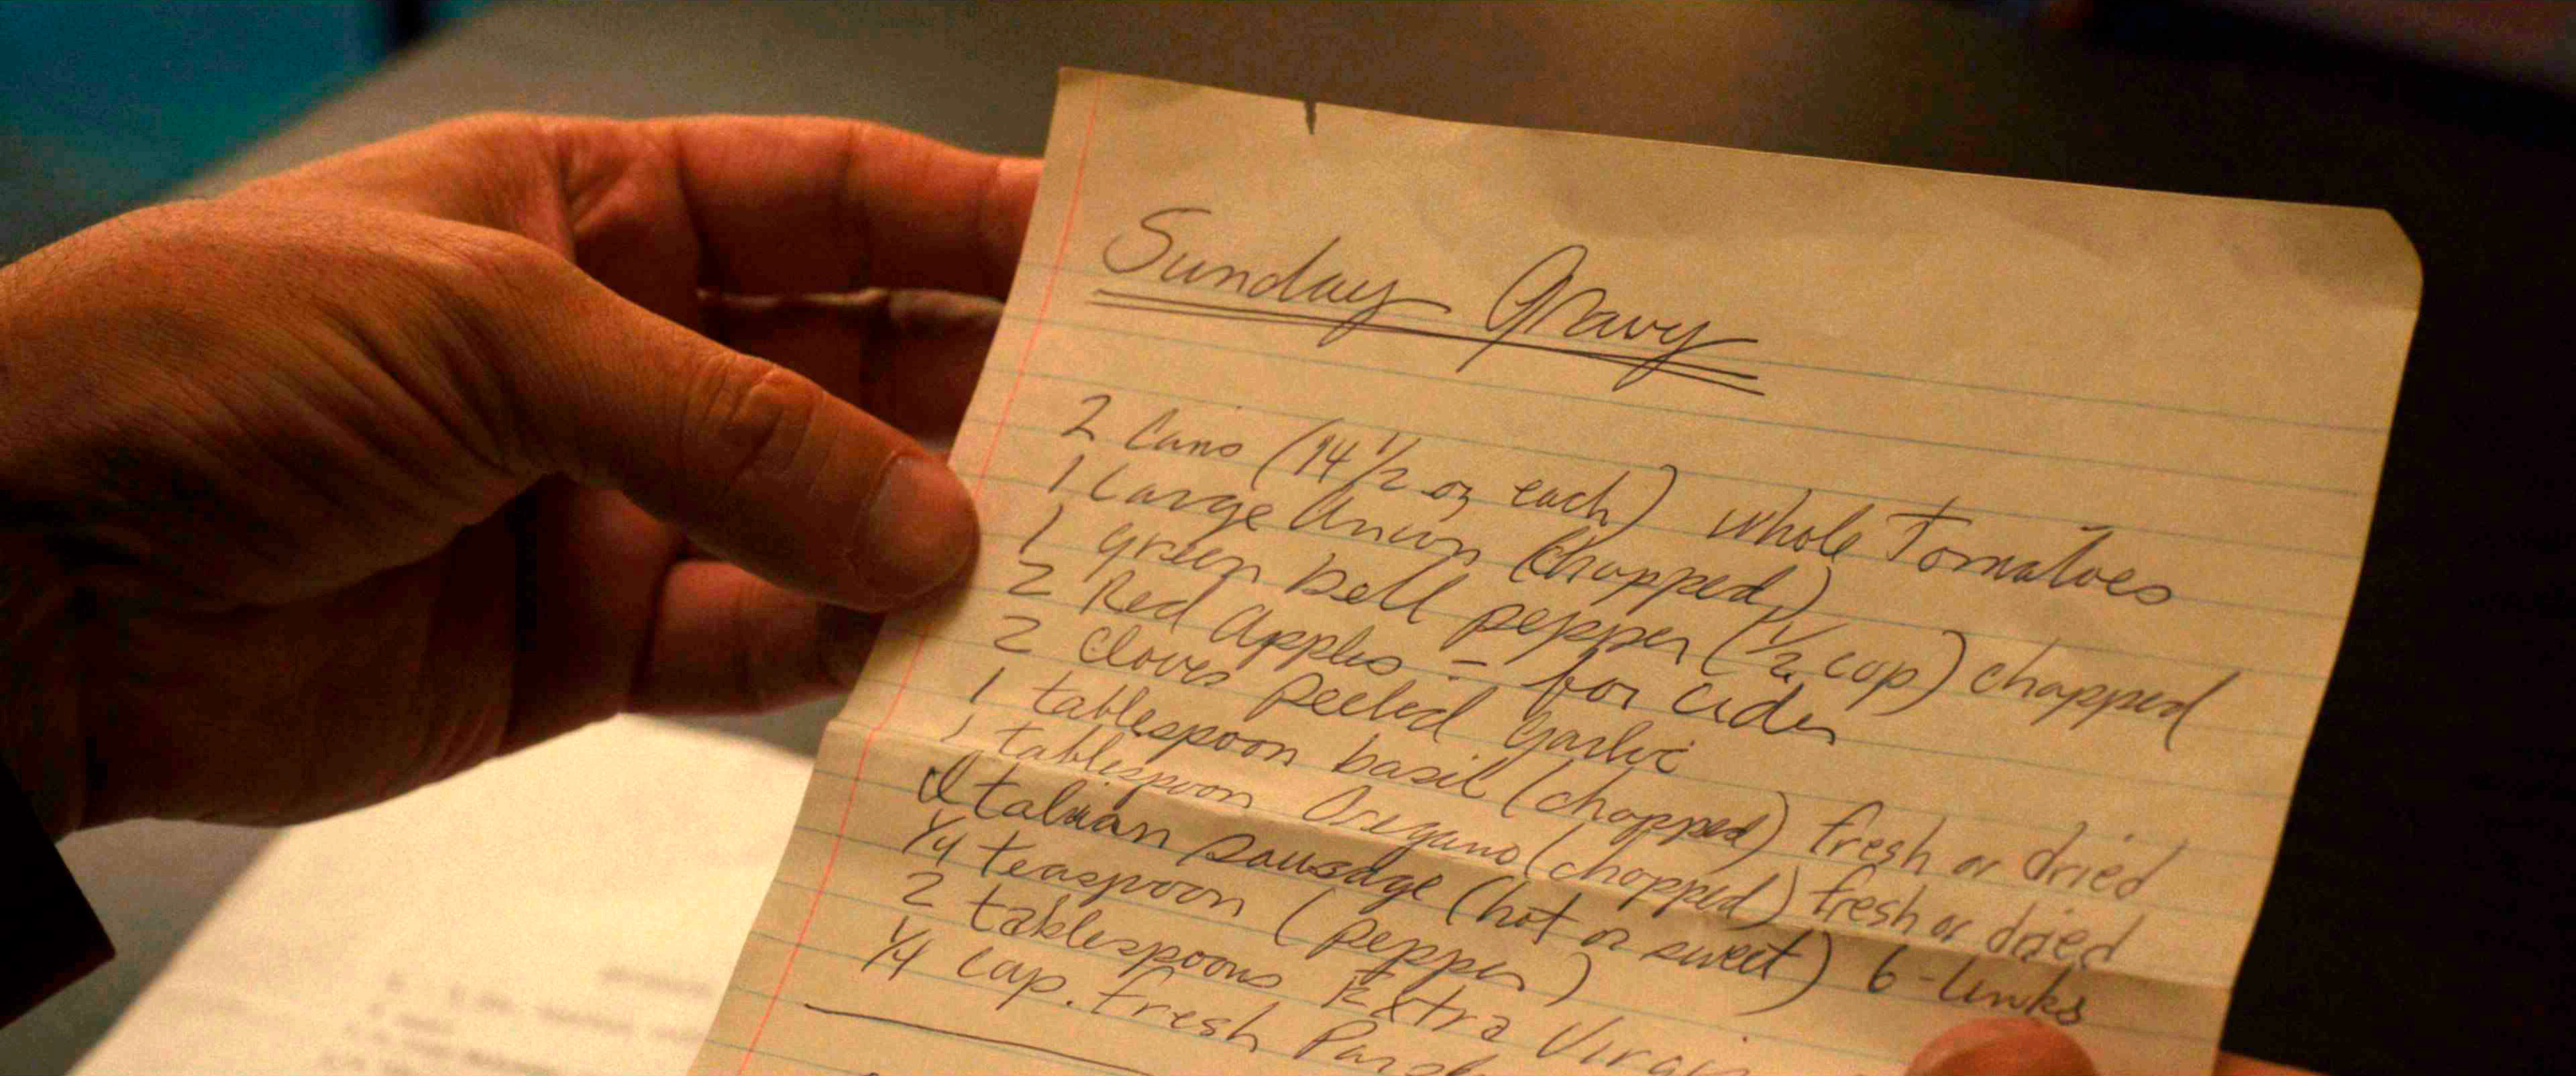 Sunday Gravy
2 Cans (14 1/2 oz each) whole Tomatoes
1 Large Onion (chopped)
1 green bell pepper (1/2 cup) chopped
2 Red Apples - for cider
2 Cloves peeled Garlic
1 tablespoon basil (chopped) fresh or dried
1 tablespoon Oregano (chopped) fresh or dried
Italian sausage (hot or sweet) 6-links
1/4 teaspoon (pepper)
2 tablespoons Extra Virgin
1/4 cup. fresh